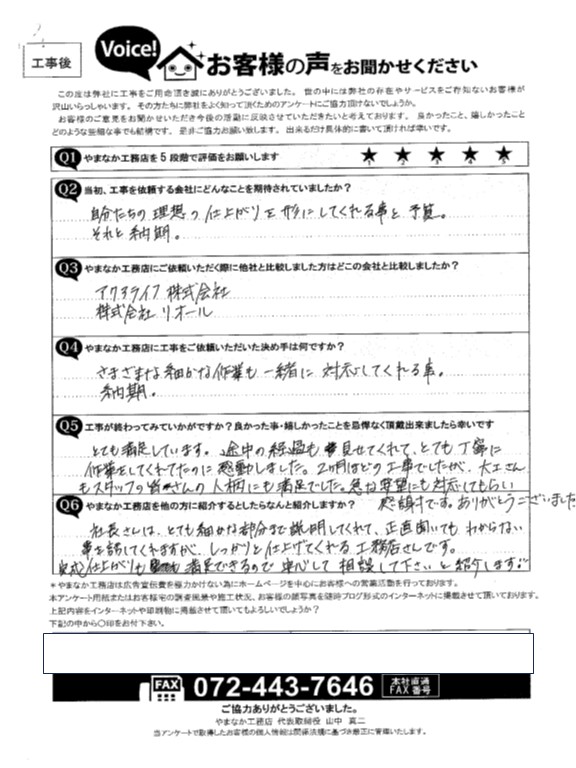 工事後
Voice!
お客様の声をお聞かせください
この度は弊社に工事をご用命頂き誠にありがとうございました。 世の中には弊社の存在やサービスをご存知ないお客様が
沢山いらっしゃいます。その方たちに弊社をよく知って頂くためのアンケートにご協力頂けないでしょうか。
お客様のご意見をお聞かせいただき今後の活動に反映させていただきたいと考えております。 良かったこと、嬉しかったこと
どのような些細な事でも結構です。是非ご協力お願い致します。出来るだけ具体的に書いて頂ければ幸いです。
Q1 やまなか工務店を5段階で評価をお願いします
★ ★ ★ ★ ★
1 2 3 4 5
Q2 当初、工事を依頼する会社にどんなことを期待されていましたか？
自分たちの理想の仕上がりを形にしてくれる事と予算。
それと納期。
Q3 やまなか工務店にご依頼いただく際に他社と比較しました方はどこの会社と比較しましたか？
アクアライフ株式会社
株式会社リオール
Q4 やまなか工務店に工事をご依頼いただいた決め手は何ですか？
さまざまな細かな作業も一緒に対応してくれる事。
納期。
Q5 工事が終わってみていかがですか？良かった事・嬉しかったことを忌憚なく頂戴出来ましたら幸いです
とても満足しています。途中の経過も見せてくれて、とても丁寧に
作業をしてくれてたのに感動しました。2ヶ月ほどの工事でしたが、大工さん
もスタッフの皆さんの人柄にも満足でした。急な要望にも対応してもらい
感謝です。ありがとうございました
Q6 やまなか工務店を他の方に紹介するとしたらなんと紹介しますか？
社長さんは、とても細かな部分まで説明してくれて、正直聞いてもわからない
事も話してくれますが、しっかりと仕上げてくれる工務店さんです。
完成仕上がりも満足できるので安心して相談して下さいと紹介します
＊やまなか工務店は広告宣伝費を極力かけない為にホームページを中心にお客様への営業活動を行っております。
本アンケート用紙またはお客様宅の調査風景や施工状況、お客様の顔写真を随時ブログ形式のインターネットに掲載させて頂いております。
上記内容をインターネットや印刷物に掲載させて頂いてもよろしいでしょうか？
下記の中から〇印をお付下さい。
FAX 072-443-7646 本社直通 FAX番号
ご協力ありがとうございました。
やまなか工務店 代表取締役 山中 真二
当アンケートで取得したお客様の個人情報は関係法規に基づき厳正に管理いたします。